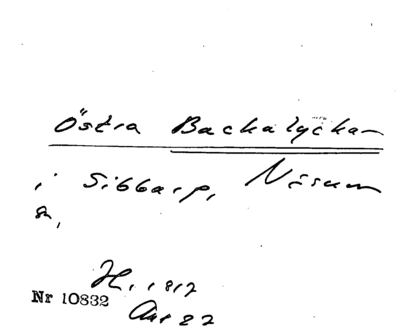 Östra Backalyckan
i Sibbarp, Näsum
sn,
H. 1812
Nr 10832
Akt 22